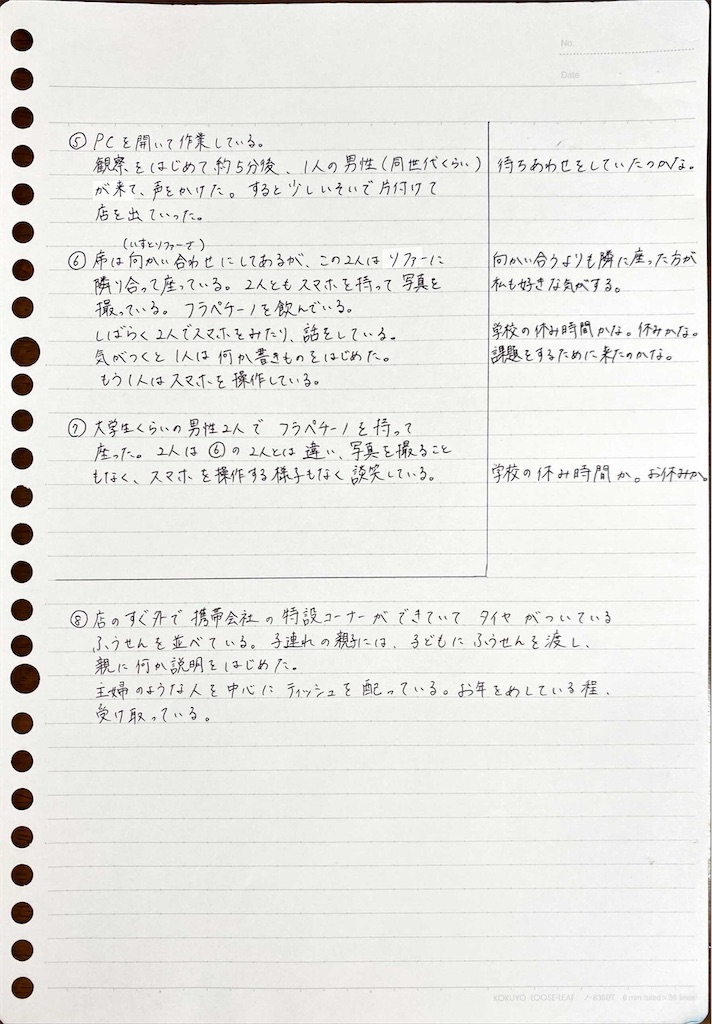 No.
Date
⑤ PCを開いて作業している。
観察をはじめて約5分後、1人の男性(同世代くらい)
が来て、声をかけた。すると少しいそいで片付けて
店を出ていった。
待ちあわせをしていたのかな。
(いすとソファーで)
⑥ 席は向かい合わせにしてあるが、この2人はソファーに
隣り合って座っている。2人ともスマホを持って写真を
撮っている。フラペチーノを飲んでいる。
しばらく2人でスマホをみたり、話をしている。
気がつくと1人は何か書きものをはじめた。
もう1人はスマホを操作している。
向かい合うよりも隣に座った方が
私も好きな気がする。
学校の休み時間かな。休みかな。
課題をするために来たのかな。
⑦ 大学生くらいの男性2人でフラペチーノを持って
座った。2人は⑥の2人とは違い、写真を撮ること
もなく、スマホを操作する様子もなく談笑している。
学校の休み時間か。お休みか。
⑧ 店のすぐ外で携帯会社の特設コーナーができていてタイヤがついている
ふうせんを並べている。子連れの親子には、子どもにふうせんを渡し、
親に何か説明をはじめた。
主婦のような人を中心にティッシュを配っている。お年をめしている程、
受け取っている。
KOKUYO LOOSE-LEAF